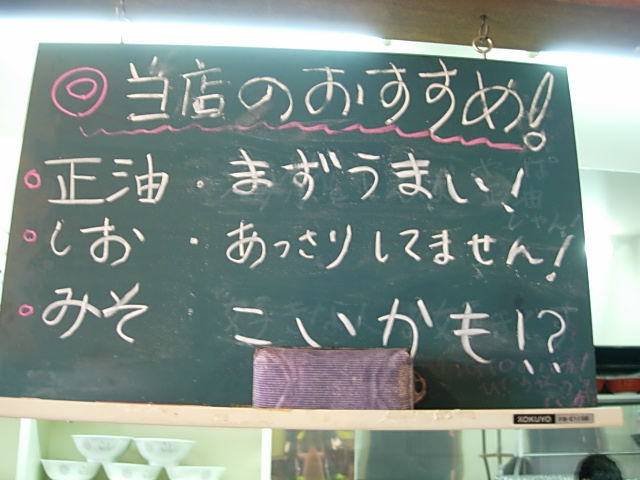 ◎当店のおすすめ!
○正油・まずうまい!
○しお・あっさりしてません!
○みそ こいかも!?
KOKUYO